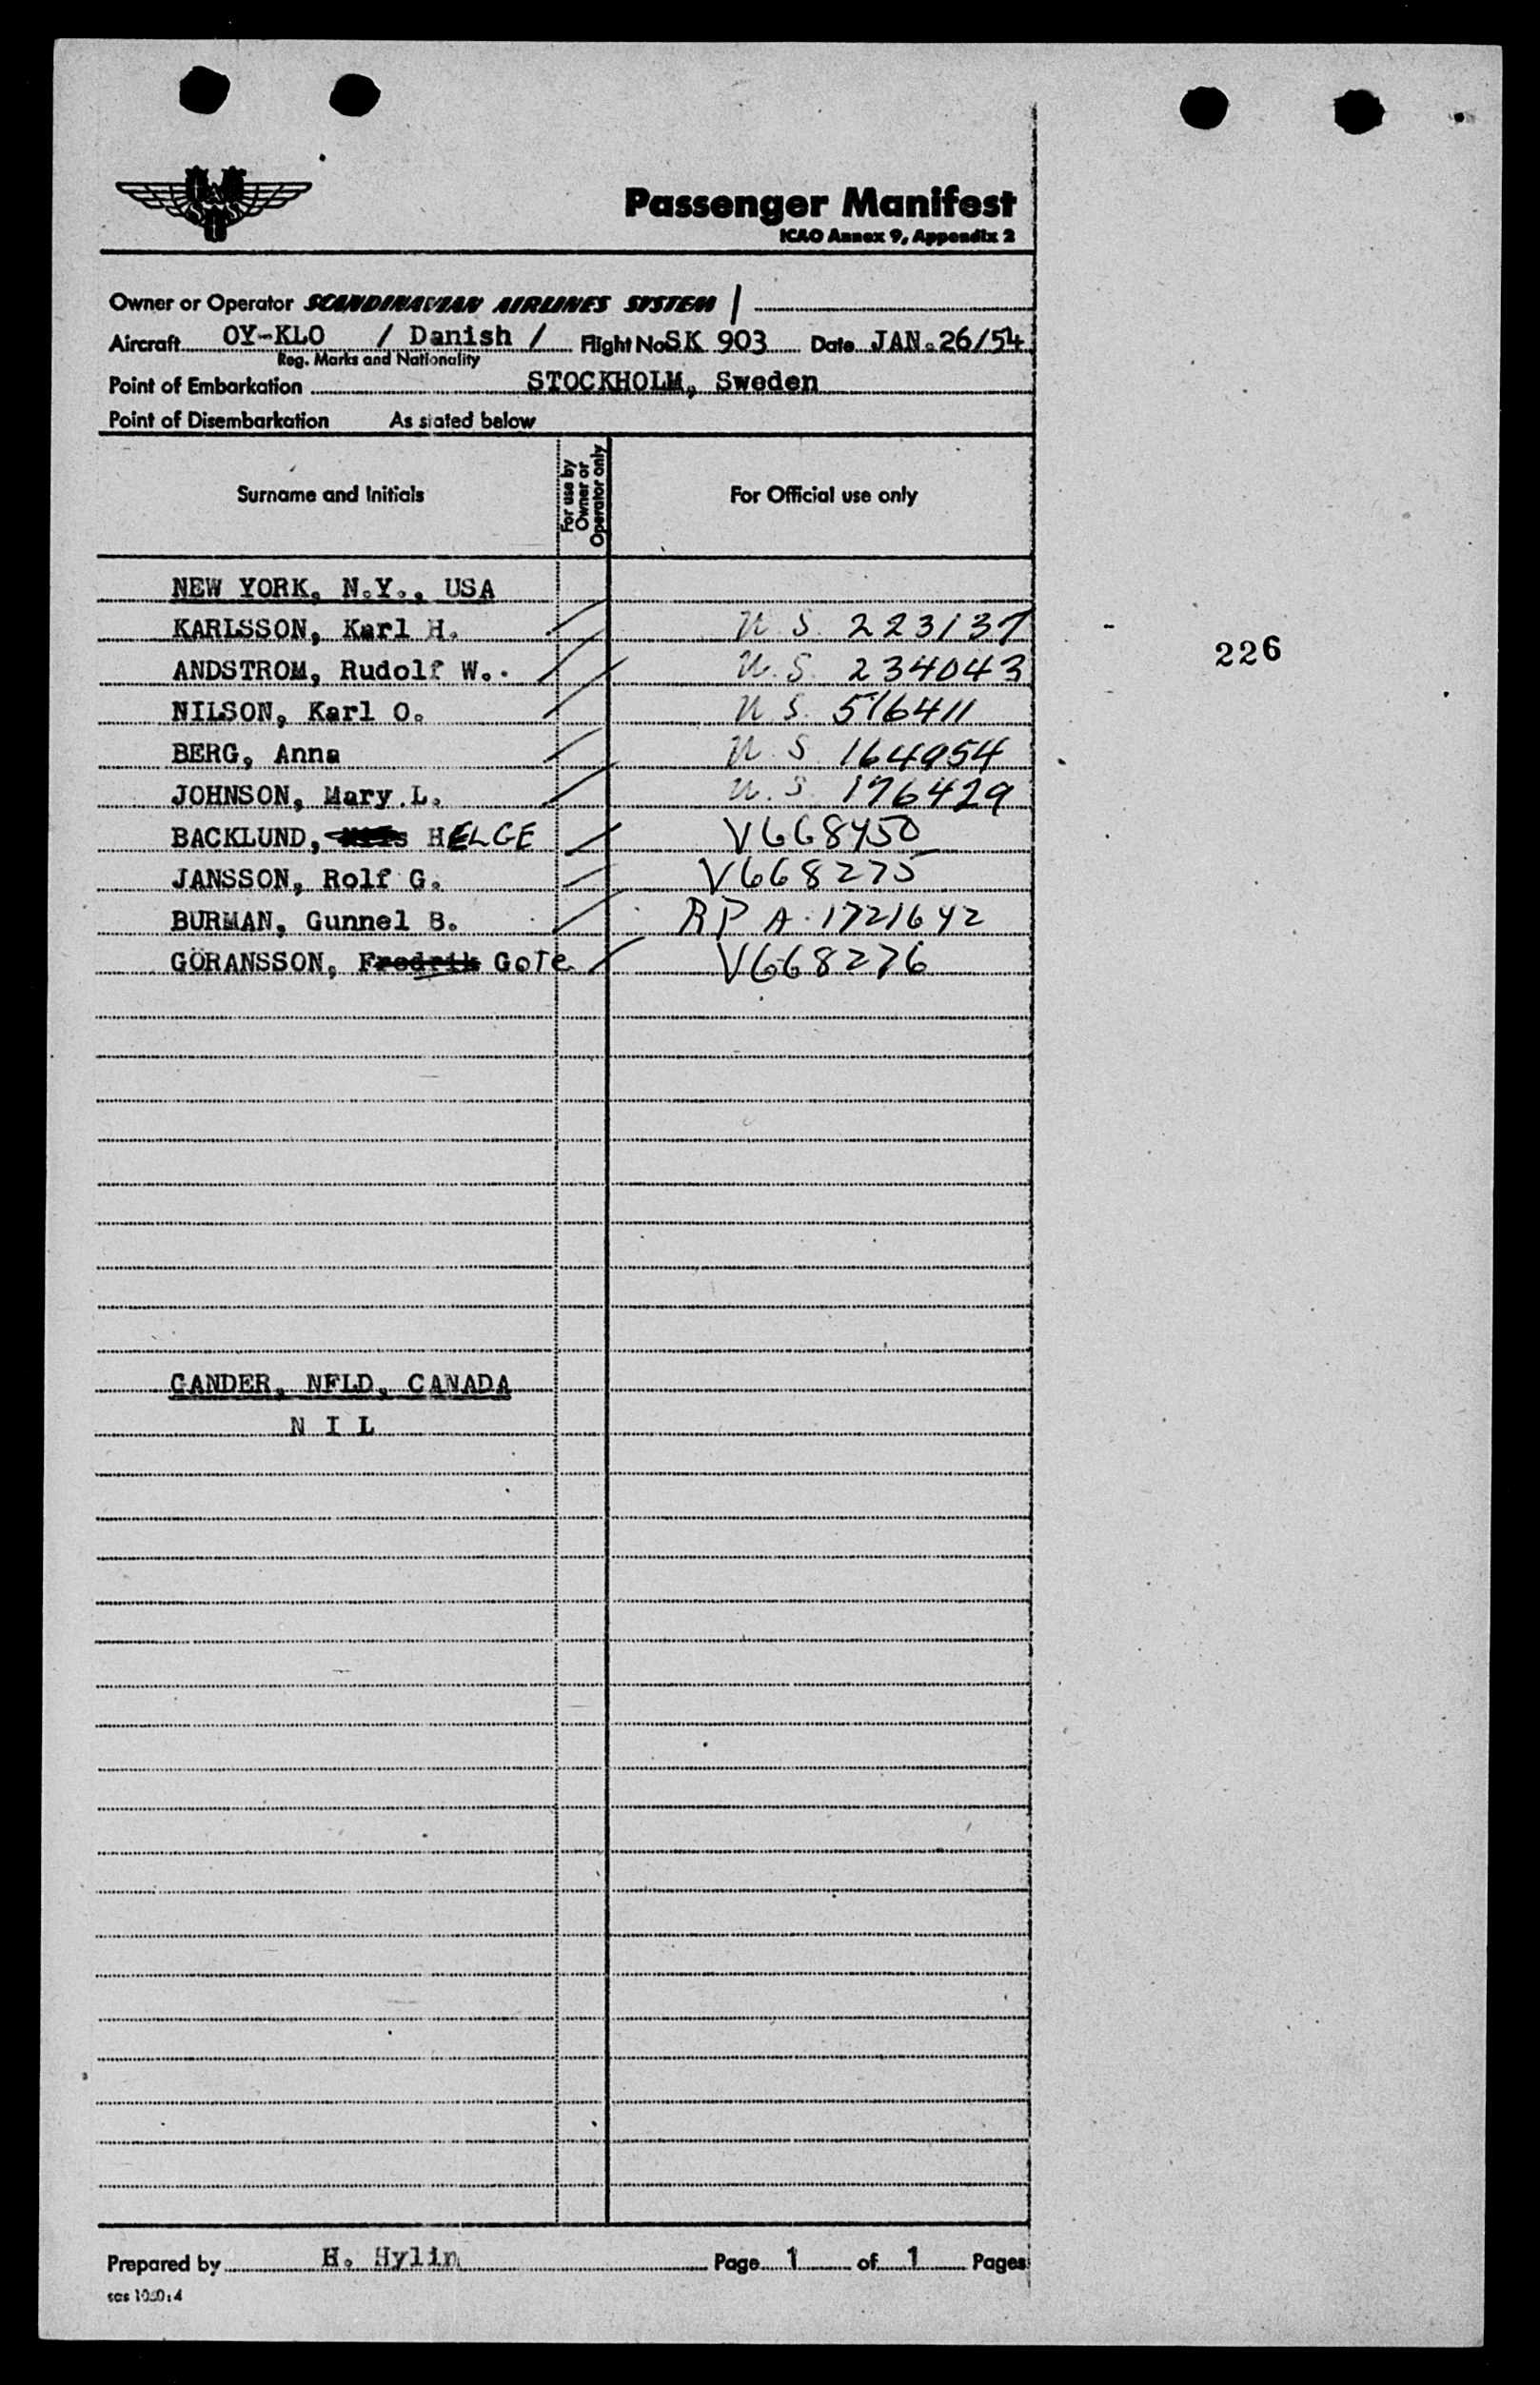 Passenger Manifest
ICAO Annex 9, Appendix 2
Owner or Operator SCANDINAVIAN AIRLINES SYSTEM /
Aircraft OY-KLO / Danish / Flight No SK 903 Date JAN. 26/54
Reg. Marks and Nationality
Point of Embarkation STOCKHOLM, Sweden
Point of Disembarkation As stated below
Surname and Initials For use by Owner or Operator only For Official use only
NEW YORK, N.Y., USA
KARLSSON, Karl H. U.S. 223137
226
ANDSTROM, Rudolf W. U.S. 234043
NILSON, Karl O. U.S. 516411
BERG, Anna U.S. 164954
JOHNSON, Mary L. U.S. 176429
BACKLUND, HELGE V668450
JANSSON, Rolf G. V668275
BURMAN, Gunnel B. RP A-1721642
GÖRANSSON, Fredrik Gote V668276
GANDER, NFLD, CANADA
N I L
Prepared by H. Hylin Page 1 of 1 Pages